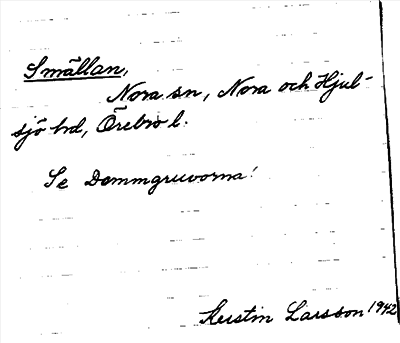 Smällan,
Nora sn, Nora och Hjul-
sjö hd, Örebro l.
Se Dammgruvorna!
Kerstin Larsson 1942